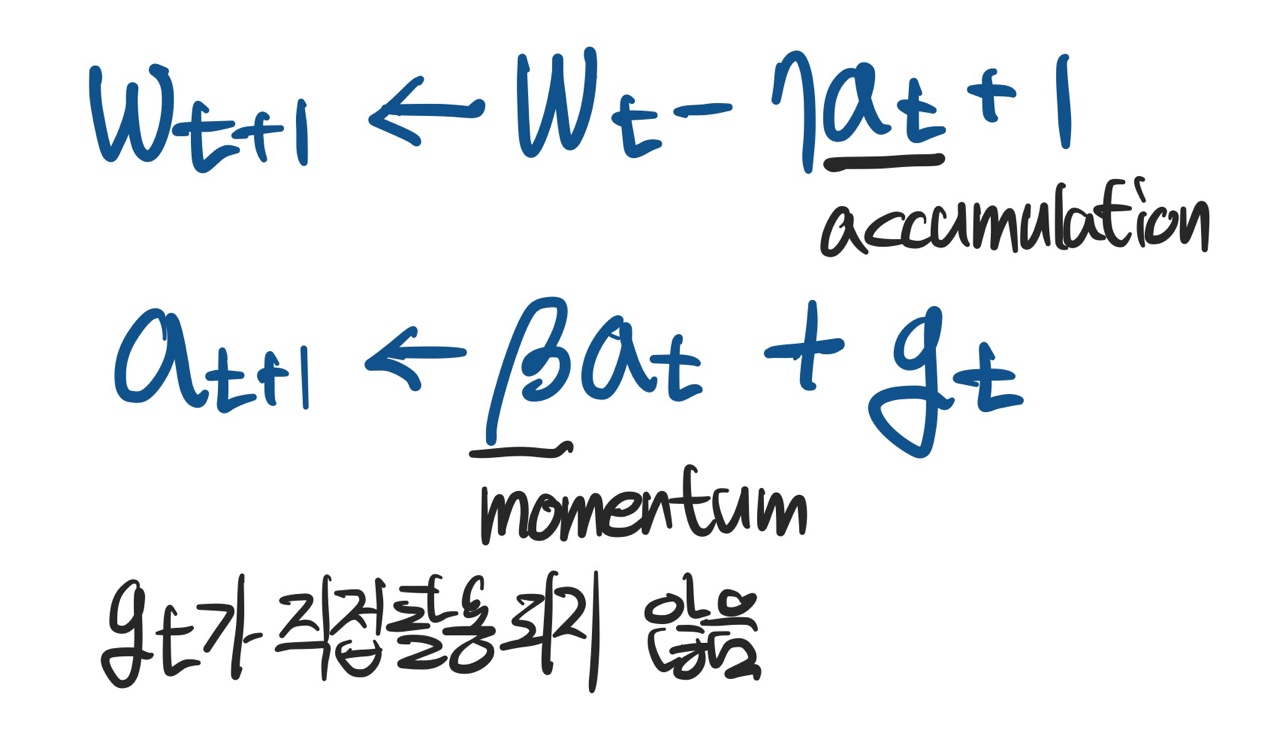 W_{t+1} ← W_t - ηa_t + 1
accumulation
a_{t+1} ← βa_t + g_t
momentum
g_t가 직접활용되지 않음